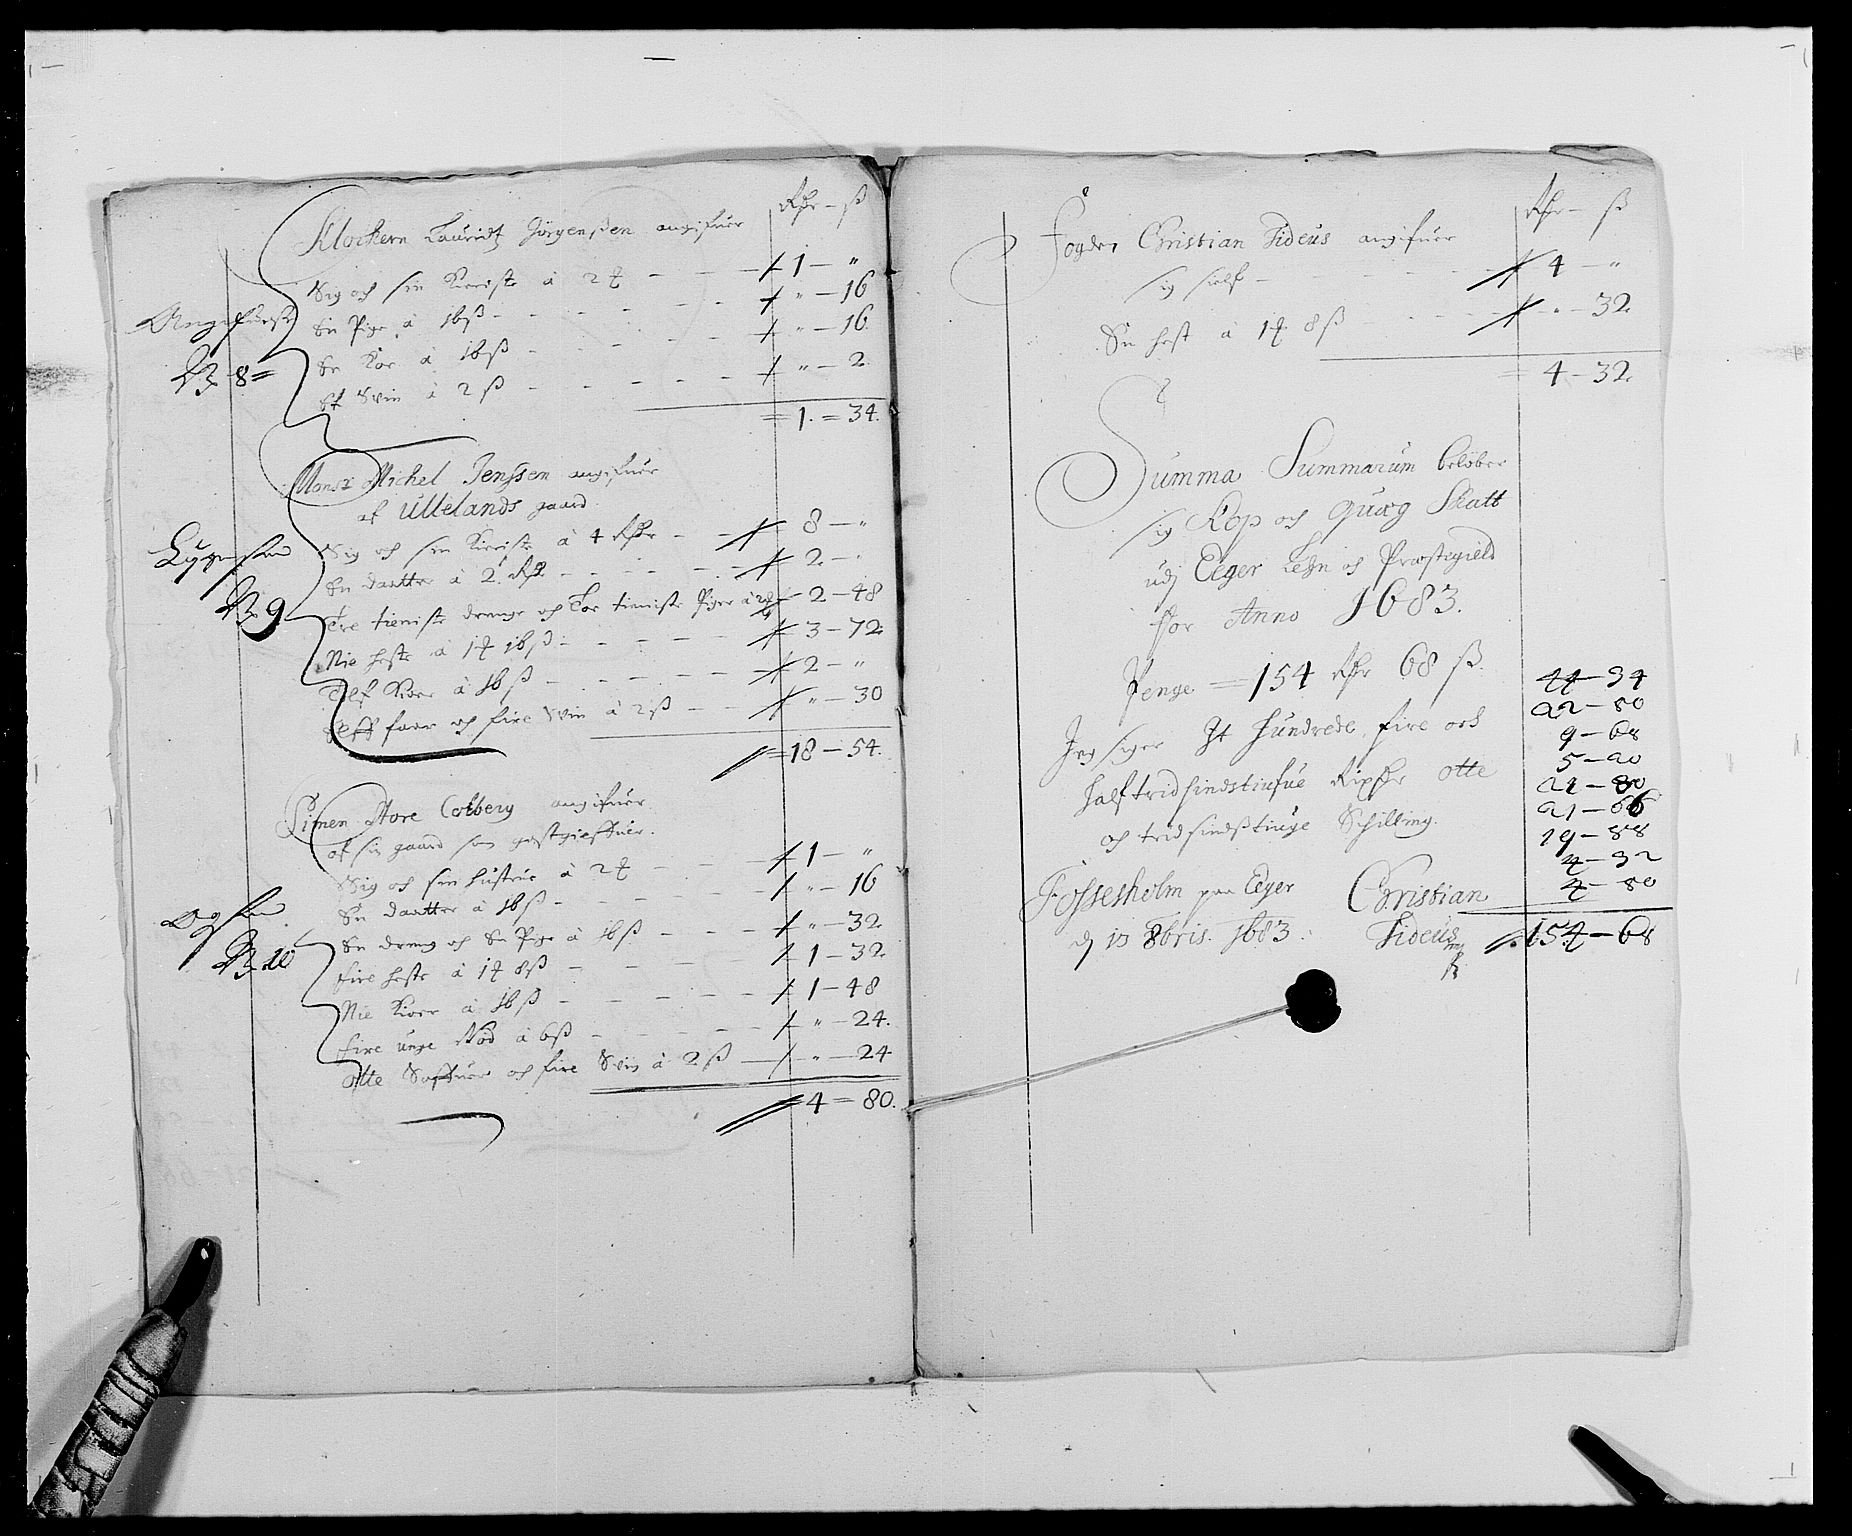 Rdr – ß
Klockern Lauridtz Jörgenßen angifuer
Sig och sin Kieriste à 2 ₰ – – – 1 – "
En Pige à 16 ß – – – – " – 16
En Koe à 16 ß – – – – " – 16
Et Svin à 2 ß – – – – – " – 2
= 1 = 34.
No 8 =
Monsr Michel Jenssen angifuer
af Ullelands gaard
Sig och sin Kieriste à 4 Rdr – – 8 – "
En daatter à 2 Rdr – – – – 2 – "
Tre tieniste drenge och Toe tieniste Piger à – 2 – 48
Nie heste à 1 ₰ 16 ß – – – – 3 – 72
Tolf Kiøer à 16 ß – – – – – 2 – "
faar och fire Svin à 2 ß – – " – 30
= 18 – 54.
No 9
Simen Store Colberg angifuer
af sin gaard som gestgieffuer.
Sig och sin hustrue à 2 ₰ – – – 1 – "
En daatter à 16 ß – – – – " – 16
En dreng och En Pige à 16 ß – – – " – 32
fire heste à 1 ₰ 8 ß – – – – 1 – 32
Nie Kiøer à 16 ß – – – – – 1 – 48
fire unge Nød à 6 ß – – – – " – 24.
otte Sauffuer och fire Svin à 2 ß – " – 24
= 4 = 80.
No 10
Rdr – ß
Fogden Christian Tideus angifuer
sig sielf – 4 – "
En hest à 1 ₰ 8 ß – – – " – 32.
= 4 – 32.
Summa Summarum beløber
sig Kop och Quæg Skatt
udj Eger Lehn och Præstegield
for Anno 1683.
Penge = 154 Rdr 68 ß.
Jeg siger It Hundrede, fire och
halftridsindstiufue Rixdr otte
och tridsindßtiuge Schilling.
Fossesholm paa Eger
dj 13 8bris. 1683.
Christian
Tideus
44 – 34
22 – 80
9 – 68
5 – 20
22 – 80
21 – 66
19 – 88
4 – 32
4 – 80
154 – 68